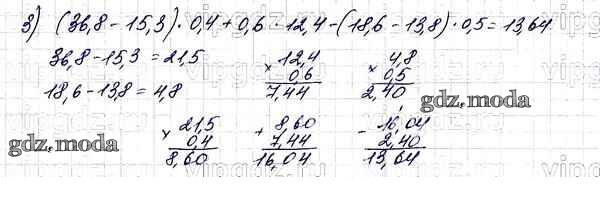 3) (36,8-15,3)·0,4+0,6·12,4-(18,6-13,8)·0,5=13,64
36,8-15,3=21,5
18,6-13,8=4,8
× 12,4
0,6
7,44
× 4,8
0,5
2,40
× 21,5
0,4
8,60
+ 8,60
7,44
16,04
- 16,04
2,40
13,64
gdz.moda
gdz.moda